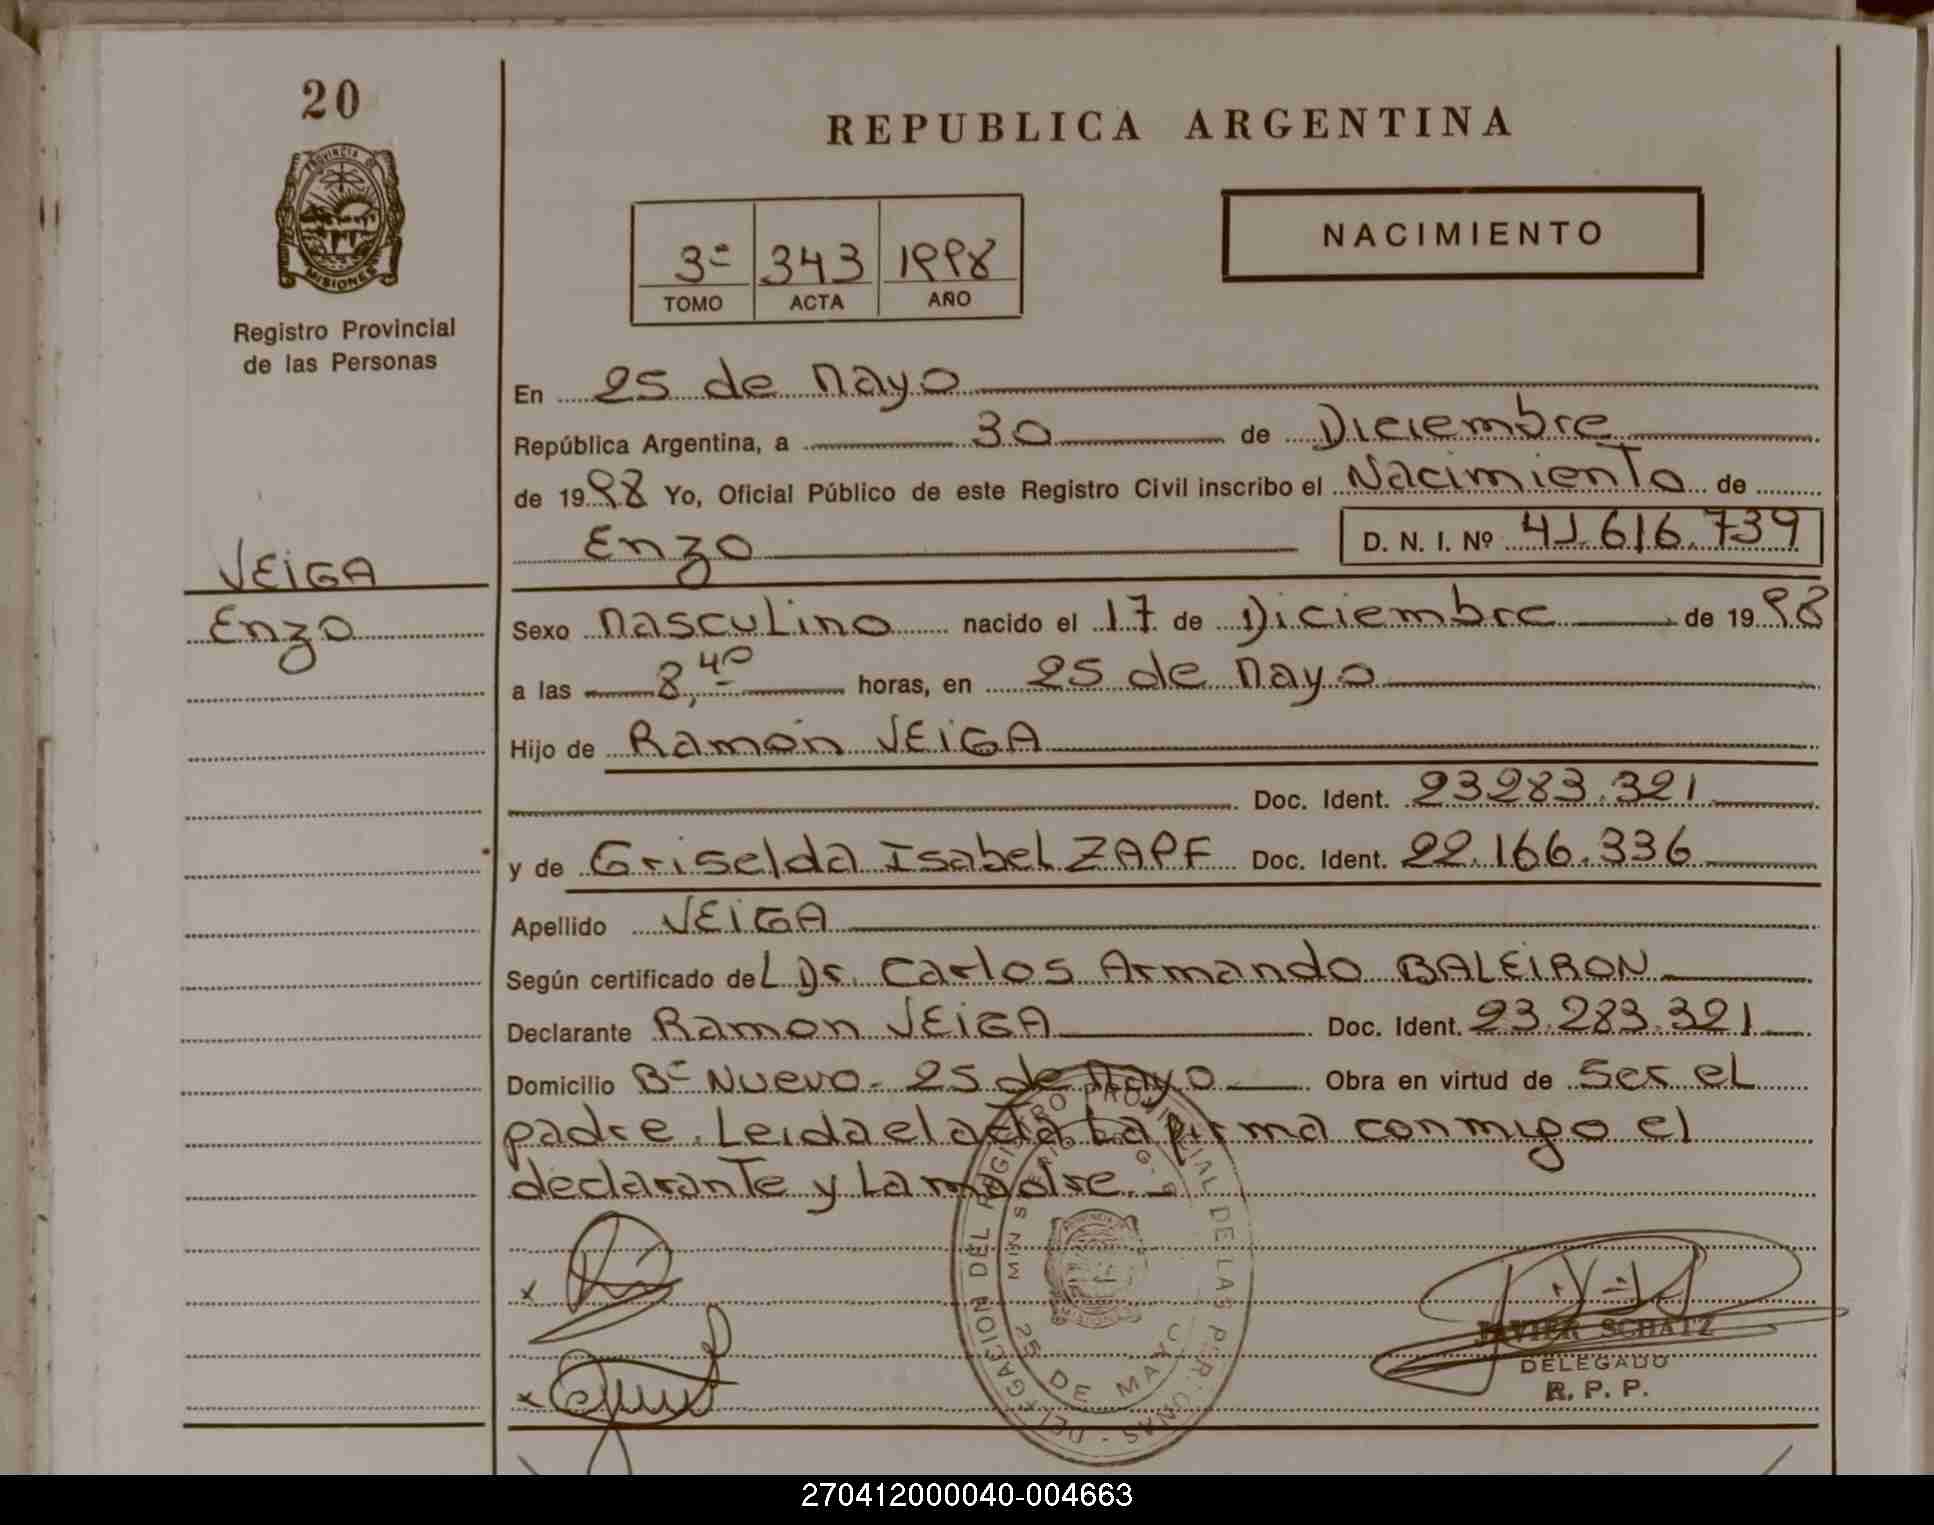 20
PROVINCIA DE
MISIONES
Registro Provincial
de las Personas
REPUBLICA ARGENTINA
3º 343 1998
TOMO ACTA AÑO
NACIMIENTO
En 25 de Mayo
República Argentina, a 30 de Diciembre
de 1998 Yo, Oficial Público de este Registro Civil inscribo el Nacimiento de
Enzo D. N. I. Nº 41.616.739
VEiGA
Enzo
Sexo Masculino nacido el 17 de Diciembre de 1998
a las 8,40 horas, en 25 de Mayo
Hijo de Ramón VEiGA
Doc. Ident. 23283.321
y de Griselda Isabel ZAPF Doc. Ident. 22.166.336
Apellido VEiGA
Según certificado del Dr. Carlos Armando BALEiRON
Declarante Ramon VEiGA Doc. Ident. 23.283.321
Domicilio Bº Nuevo - 25 de Mayo Obra en virtud de Ser el
padre. Leida el acta La firma conmigo el
declarante y La madre. -
DELEGACION DEL REGISTRO PROVINCIAL DE LAS PERSONAS -
25 DE MAYO
MISIONES
JAVIER SCHATZ
DELEGADO
R. P. P.
270412000040-004663